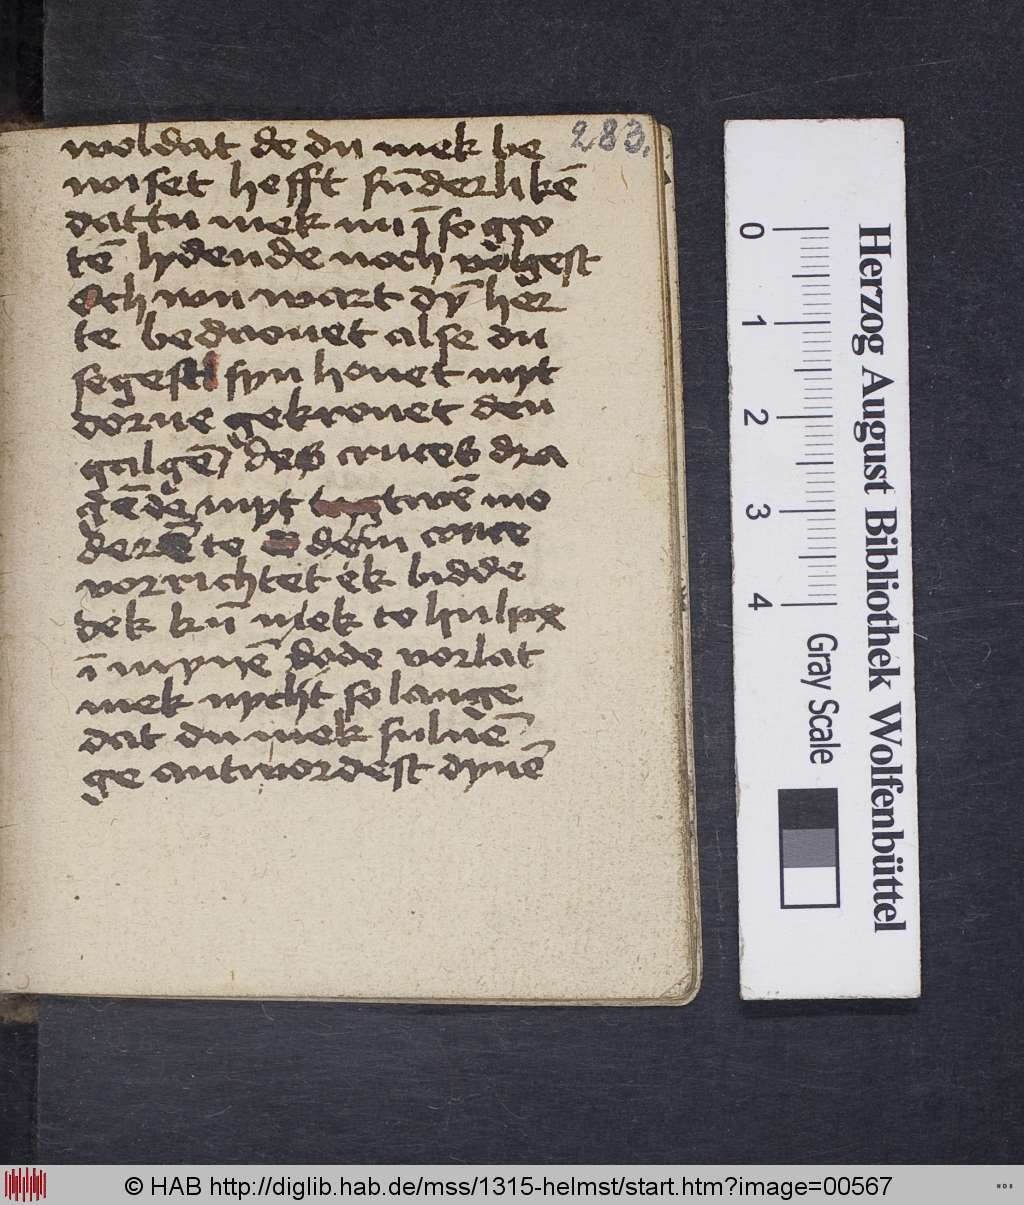 woldat de du mek be
wiset hefft sūderlikē
dattu mek nu ī so gro
tē lydende noch volgest
Och wu wart dȳ her
te bedrouet alse du
segest syn houet myt
dorne gekronet den
galgē des cruces dra
gēde myt twē mo
derē to dem cruce
vorrichtet ek bidde
dek kū mek to hulpe
ī mynē dode vorlat
mek nycht so lange
dat du mek suluē
ge antwordest dynē
283.
0
1
2
3
4
Gray Scale
Herzog August Bibliothek Wolfenbüttel
© HAB http://diglib.hab.de/mss/1315-helmst/start.htm?image=00567